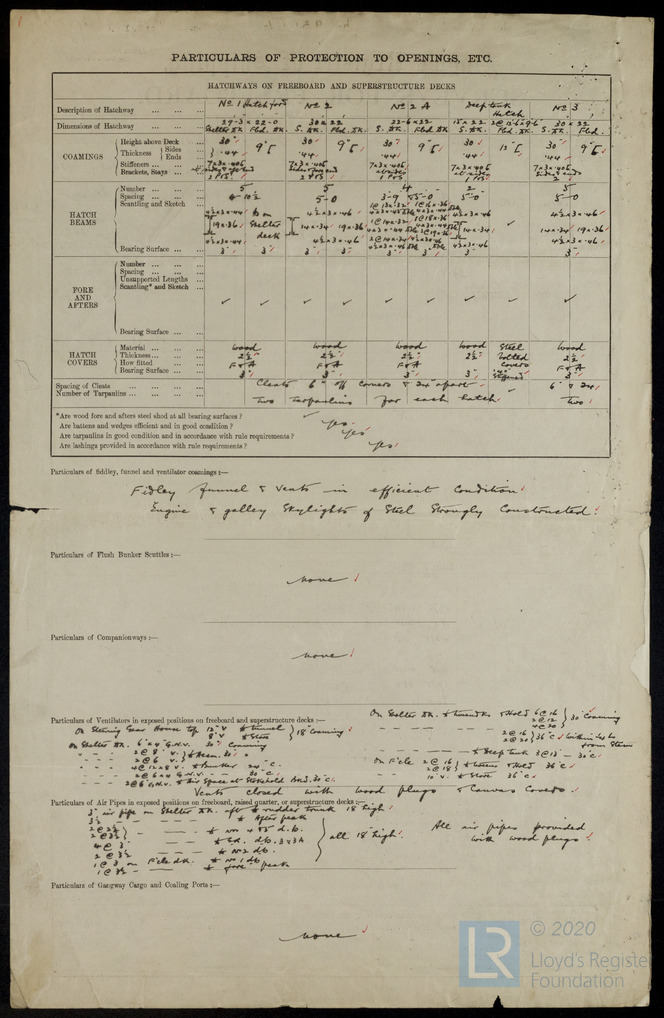 PARTICULARS OF PROTECTION TO OPENINGS, ETC.
HATCHWAYS ON FREEBOARD AND SUPERSTRUCTURE DECKS
Description of Hatchway ... ... ... No 1 Hatch ford No 2 No 2 A Deep tank Hatch No 3
Dimensions of Hatchway ... ... ... 29-3 x 22-0 30 x 22 22-6 x 22 15 x 22 30 x 22
Shelter Dk. Fbd. Dk. S. Dk. Fbd. Dk. S. Dk. Fbd Dk. S. Dk. Fbd. Dk. S. Dk. Fbd.
COAMINGS
Height above Deck ... 30" 9" 30" 9" 30" 9" 30" 12" 30" 9"
Thickness { Sides ...
Ends ... .44 .44 .44 .44 .44
Stiffeners ... ... ... 7x3x.406 7x3x.406 7x3x.406 7x3x.406 7x3x.406
Brackets, Stays ... ...
HATCH BEAMS
Number ... ... ... 5 5 4 2 5
Spacing ... ... ... 4-10½ 5-0 3-9 5-0 5-0 5-0
Scantling and Sketch ...
4½x3x.44 4½x3x.46 4½x3x.46 4½x3x.46
19x.36 Shelter deck 14x.34 19x.36 14x.34 14x.34 19x.36
Bearing Surface ... ... 3" 3" 3" 3" 3" 3" 3" 3"
FORE AND AFTERS
Number ... ... ...
Spacing ... ... ...
Unsupported Lengths ...
Scantling* and Sketch ...
Bearing Surface ... ...
HATCH COVERS
Material ... ... ... wood wood wood wood Steel wood
Thickness ... ... ... 2½" 2½" 2½" 2½" bolted 2½"
How fitted ... ... F & A F & A F & A covers F & A
Bearing Surface ... ... 3" 3" 3" 3" 3"
Spacing of Cleats ... ... ... Cleats 6" off corners & 24" apart 6" & 24
Number of Tarpaulins ... ... ... Two tarpaulins for each hatch Two
*Are wood fore and afters steel shod at all bearing surfaces ?
Are battens and wedges efficient and in good condition ? yes
Are tarpaulins in good condition and in accordance with rule requirements ? yes
Are lashings provided in accordance with rule requirements ? yes
Particulars of fiddley, funnel and ventilator coamings :—
Fidley funnel & vents in efficient condition
Engine & galley Skylights of Steel Strongly Constructed.
Particulars of Flush Bunker Scuttles :—
none
Particulars of Companionways :—
none
Particulars of Ventilators in exposed positions on freeboard and superstructure decks :—
On Steering Gear House top 12" v to tunnel
8" v to store } 18" Coaming
On Shelter Dk. 6"x4 G.N.V. 30" Coaming
" - - 4 @ 12 x 8 v. to Bunker 24" C.
" - - 2 @ 6 x 4 G.N.V. - - 30" C.
On Shelter Dk. to tween dks & Hold 6 @ 16
2 @ 12
4 @ 20 } 30" Coaming
2 @ 16
2 @ 20 } 36" C.
- - - - to Deep tank 2 @ 12 - 30" C.
On F'cle 2 @ 16
2 @ 18 } to tween & Hold 36" C
- - 10" v. to Store 36" C.
Vents closed with wood plugs & Canvas Covers.
Particulars of Air Pipes in exposed positions on freeboard, raised quarter, or superstructure decks :—
3" air pipe on Shelter Dk. aft to rudder trunk 18" high
3½ - - - - to After peak
2 @ 2½
2 @ 3½ } - - - - to No 4 & 5 d.b.
4 @ 3 - - - -
2 @ 3½ - - - to No 2 db.
1 @ 3 on F'cle dk. to No 1 db
1 @ 3½ - - to fore peak
all 18" high.
All air pipes provided
with wood plugs.
Particulars of Gangway Cargo and Coaling Ports :—
none
LR
© 2020
Lloyd's Register
Foundation